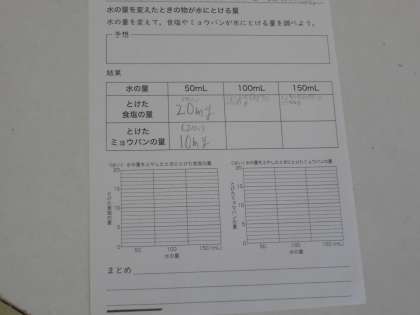 水の量を変えたときの物が水にとける量
水の量を変えて、食塩やミョウバンが水にとける量を調べよう。
予想
結果
水の量 50mL 100mL 150mL
とけた
食塩の量
20mg
とけた
ミョウバンの量
10mg
水の量をふやしたときにとけた食塩の量
水の量をふやしたときにとけたミョウバンの量
とけた食塩の量
20
15
10
5
0
50 100 150 (mL)
水の量
とけたミョウバンの量
20
15
10
5
0
50 100 150 (mL)
水の量
まとめ